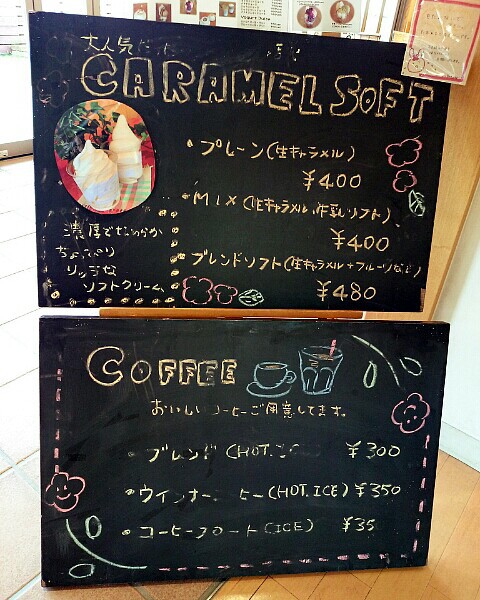 大人気
CARAMEL SOFT
・プレーン(生キャラメル)
¥400
・MIX(生キャラメル、牛乳ソフト)
¥400
・ブレンドソフト(生キャラメル+フルーツなど)
¥480
濃厚でなめらか
ちょっぴり
リッチな
ソフトクリーム
COFFEE
おいしいコーヒーご用意してます。
・ブレンド(HOT.
¥300
・ウインナー ヒー(HOT.ICE) ¥350
・コーヒーフロート(ICE) ¥35